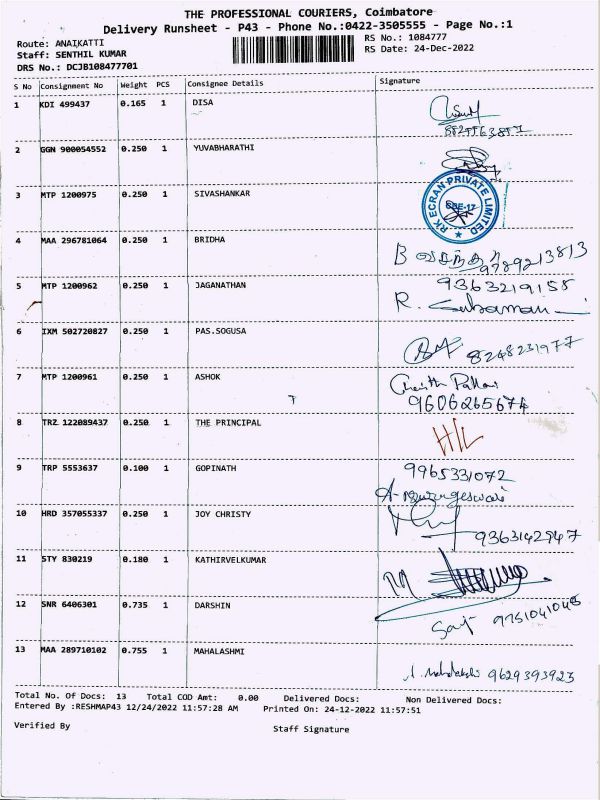 THE PROFESSIONAL COURIERS, Coimbatore
Delivery Runsheet - P43 - Phone No.:0422-3505555 - Page No.:1
Route: ANAIKATTI
RS No.: 1084777
Staff: SENTHIL KUMAR
RS Date: 24-Dec-2022
DRS No.: DCJB108477701
S No Consignment No Weight PCS Consignee Details Signature
1 KDI 499437 0.165 1 DISA
2 GGN 900054552 0.250 1 YUVABHARATHI
3 MTP 1200975 0.250 1 SIVASHANKAR
RK ECRAN PRIVATE LIMITED
4 MAA 296781064 0.250 1 BRIDHA
B வசந்தா
9789213813
5 MTP 1200962 0.250 1 JAGANATHAN
9363219158
R.
6 IXM 502720827 0.250 1 PAS.SOGUSA
8248231977
7 MTP 1200961 0.250 1 ASHOK
9606265674
8 TRZ 122089437 0.250 1 THE PRINCIPAL
H/L
9 TRP 5553637 0.100 1 GOPINATH
9965331072
10 HRD 357055337 0.250 1 JOY CHRISTY
9363142947
11 STY 830219 0.180 1 KATHIRVELKUMAR
12 SNR 6406301 0.735 1 DARSHIN
9751041048
13 MAA 289710102 0.755 1 MAHALASHMI
9629393923
Total No. Of Docs: 13 Total COD Amt: 0.00 Delivered Docs: Non Delivered Docs:
Entered By :RESHMAP43 12/24/2022 11:57:28 AM Printed On: 24-12-2022 11:57:51
Verified By
Staff Signature